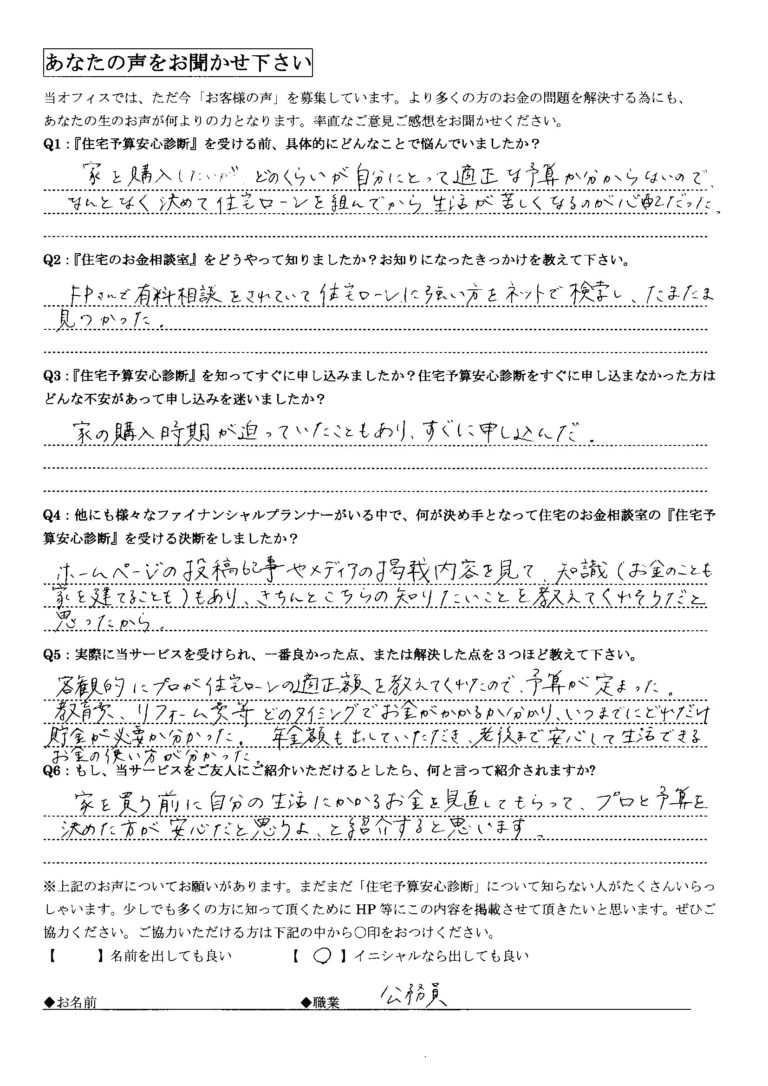 あなたの声をお聞かせ下さい
当オフィスでは、ただ今「お客様の声」を募集しています。より多くの方のお金の問題を解決する為にも、
あなたの生のお声が何よりの力となります。率直なご意見ご感想をお聞かせください。
Q1：『住宅予算安心診断』を受ける前、具体的にどんなことで悩んでいましたか？
家を購入したいが、どのくらいが自分にとって適正な予算か分からないので、
なんとなく決めて住宅ローンを組んでから生活が苦しくなるのが心配だった。
Q2：『住宅のお金相談室』をどうやって知りましたか？お知りになったきっかけを教えて下さい。
FPさんで有料相談をされていて住宅ローンに強い方をネットで検索し、たまたま
見つかった。
Q3：『住宅予算安心診断』を知ってすぐに申し込みましたか？住宅予算安心診断をすぐに申し込まなかった方は
どんな不安があって申し込みを迷いましたか？
家の購入時期が迫っていたこともあり、すぐに申し込んだ。
Q4：他にも様々なファイナンシャルプランナーがいる中で、何が決め手となって住宅のお金相談室の『住宅予
算安心診断』を受ける決断をしましたか？
ホームページの投稿記事やメディアの掲載内容を見て、知識（お金のことも
家を建てることも）もあり、きちんとこちらの知りたいことを教えてくれそうだと
思ったから。
Q5：実際に当サービスを受けられ、一番良かった点、または解決した点を３つほど教えて下さい。
客観的にプロが住宅ローンの適正額を教えてくれたので、予算が定まった。
教育費、リフォーム費等どのタイミングでお金がかかるか分かり、いつまでにどれだけ
貯金が必要か分かった。 年金額も出していただき、老後まで安心して生活できる
お金の使い方が分かった。
Q6：もし、当サービスをご友人にご紹介いただけるとしたら、何と言って紹介されますか?
家を買う前に自分の生活にかかるお金を見直してもらって、プロと予算を
決めた方が安心だと思うよ、と紹介すると思います。
※上記のお声についてお願いがあります。まだまだ「住宅予算安心診断」について知らない人がたくさんいらっ
しゃいます。少しでも多くの方に知って頂くために HP 等にこの内容を掲載させて頂きたいと思います。ぜひご
協力ください。ご協力いただける方は下記の中から〇印をおつけください。
【　　】名前を出しても良い　　【 ○ 】イニシャルなら出しても良い
◆お名前　　◆職業 公務員